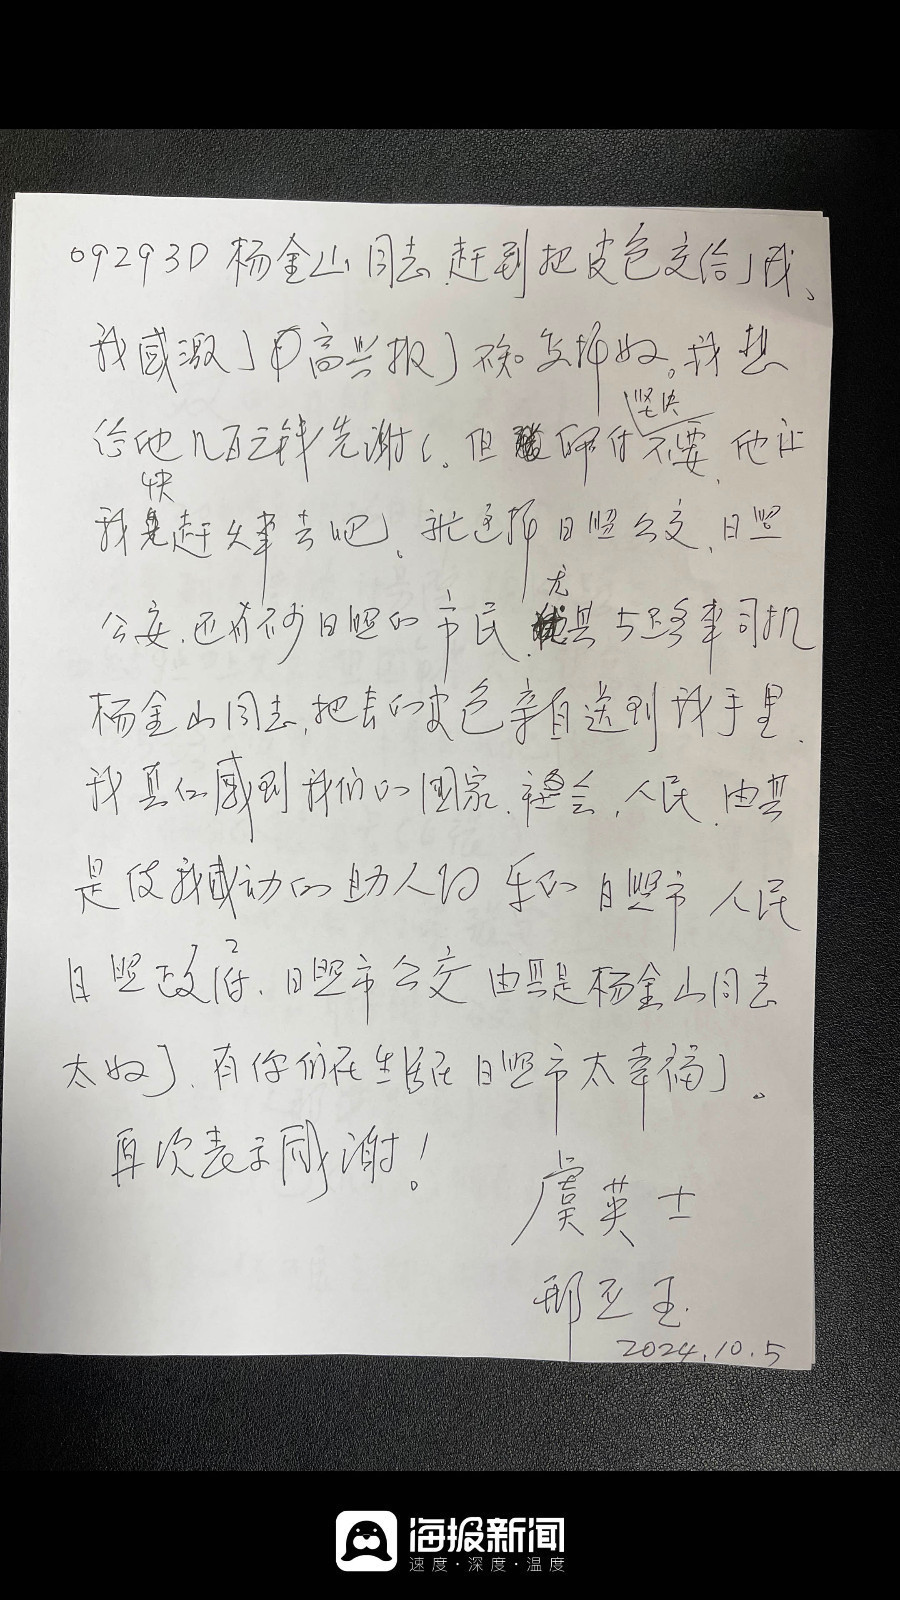 09293D 杨金山同志赶到把皮包交给了我、
我感激了
高兴
不知怎
好。我想
坚决
给他几百元钱先谢
。但
师付不要，他让
快
我赶火车去吧
日照公交、日照
公安、还有不少日照的市民、
尤
其
路车司机
杨金山同志、把丢的皮包亲自送到我手里、
我真的感到我们的国家、社会、人民、
是使我感动的助人
乐的日照市人民
日照政府、日照市公交
是杨金山同志
太好了、有你们在生活在日照市太幸福了。
再次表示感谢！
虞英士
邢
玉
2024.10.5
海报新闻
速度·深度·温度